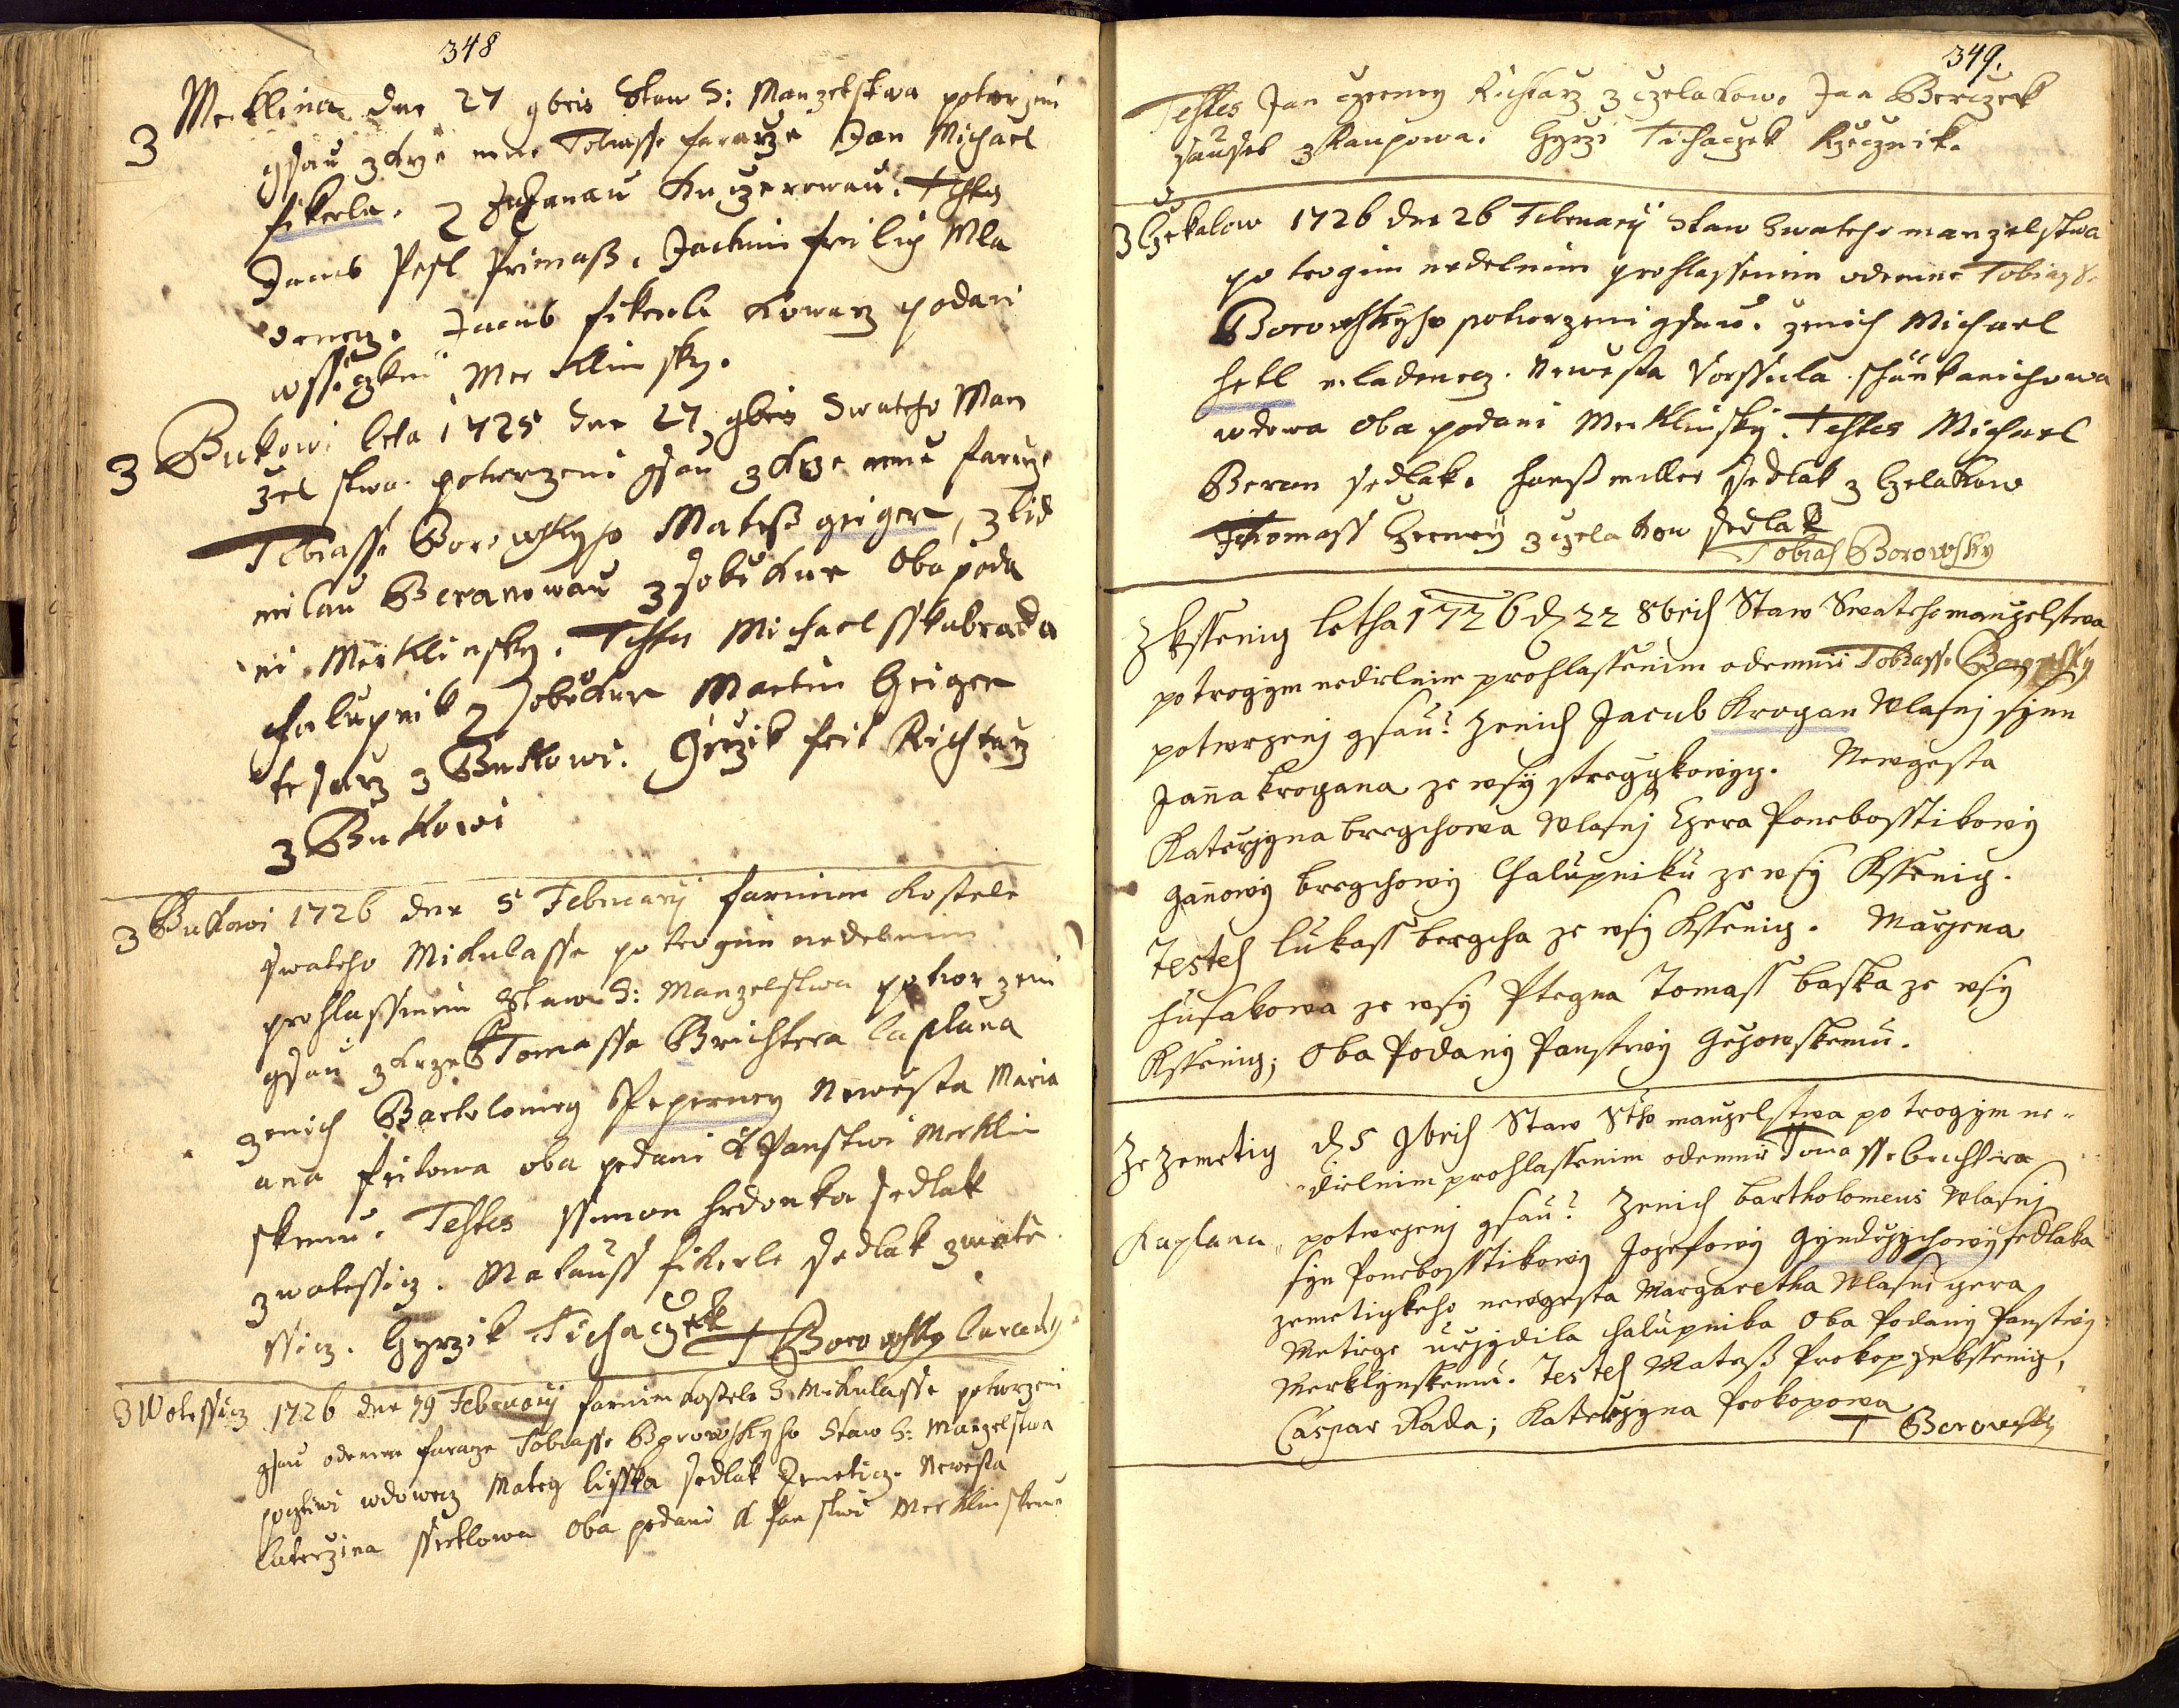 348
3 Merklina dne 27 9bris Staw S: Manzelstwa potwrzeni
gsau skrze mne Tobiasse faraze Jan Michael
fikerle. z Zuzanau Kuczerowau. Testes
Jacub Pesl Primass. Jachim freilich Mla
denecz. Jacub fikerle Kowarz podani
wssiczkni Merklinsky.
3 Bukowi leta 1725 dne 27 9bris Swateho Man
zel stwa potwrzeni gsau skrze mne faraze
Tobiasse Borowskyho Matess geiger, z lid
milau Beranowau z sobiekur Oba poda
ni Merklinsky. Testes Michael sskabrada
chalupnik z Sobiekur Martin Geiger
tesarz z Bukowi. Girzik freit Richtarz
z Bukowi
3 Bukowi 1726 dne 5 February farnim Kostele
swateho Mikulasse po trogim nedelnim
prohlassenim Staw S: Manzelstwa potwrzeni
gsau skrze Tomasse Brichtera Caplana
zenich Bartolomeg Peperney Newiesta Maria
ana freitowa oba podani k Panstwi Merklin
skemu. Testes ssimon hrdonka sedlak
z wotessicz. Matauss fikerle sedlak z wote
ssicz. Gyrzik Tichaczek T Borowsky Curatus
3 Wotessicz 1726 dne 19 February farnim kostele S. Mikulasse potwrzeni
gsau odemne faraze Tobiasse Borowskyho Staw S: Manzelstwa
poctiwi wdowecz Mateg lisska sedlak Zemeticz. Newesta
Caterzina ssirklowa Oba podani k Panstwi Merklinskemu
349.
Testes Jan czerney Richtarz z czelakow. Jan Berczek
saused z Raupowa. Gyrzi Tichaczek Rzeznik.
3 Czekalow 1726 dne 26 February Staw Swateho manzelstwa
po trogim nedelnim prohlassenim odemne Tobiasse
Borowskyho potwrzeni gsau. zenich Michael
hetl mladenecz. Newesta Vorssula schänkanichowa
wdowa Oba podani Merklinsky. Testes Michael
Beran sedlak. Hanss miller sedlak z Czelakow
Thomass Czerney z czelakow sedlak
Tobias Borowsky
Z kssenig letha 1726 d 22 8bris Staw Swateho manzelstwa
po trogym nedielnim prohlassenim odemnie Tobiasse Borowsky
potwrzenj gsau? Zenich Jacub Krogan Wlasnj synn
Janna krogana ze wsy stregczkowycz. Newgesta
Katerzyna bregchowa Wlasnj Czera Ponebosstikowy
Gannowy bregchowy Chalupniku ze wsy Kssenig.
Testes lukass bregcha ze wsy Kssenig. Marzena
husakowa ze wsy Ptegna Tomass baska ze wsy
Kssenig; Oba Podany Panstwy Gezowskemu.
Ze Zemetig d 5 9bris Staw Stho manzelstwa po trogym ne„
„dielnim prohlassenim odemnie Tomasse brichtera
Kaplana„ potwrzenj gsau? Zenich bartholomeus Wlasnj
syn Ponebosstikowy Jozefowy Gyndrzychowy sedlaka
zemetigkeho newgesta Margaretha Wlasni czera
Matiege urzydila chalupnika Oba Podany Panstwy
Merklynskemu. Testes Matess Prokop z kssenig,
Caspar Rada; Katerzyna Prokopowa
T Borowsky